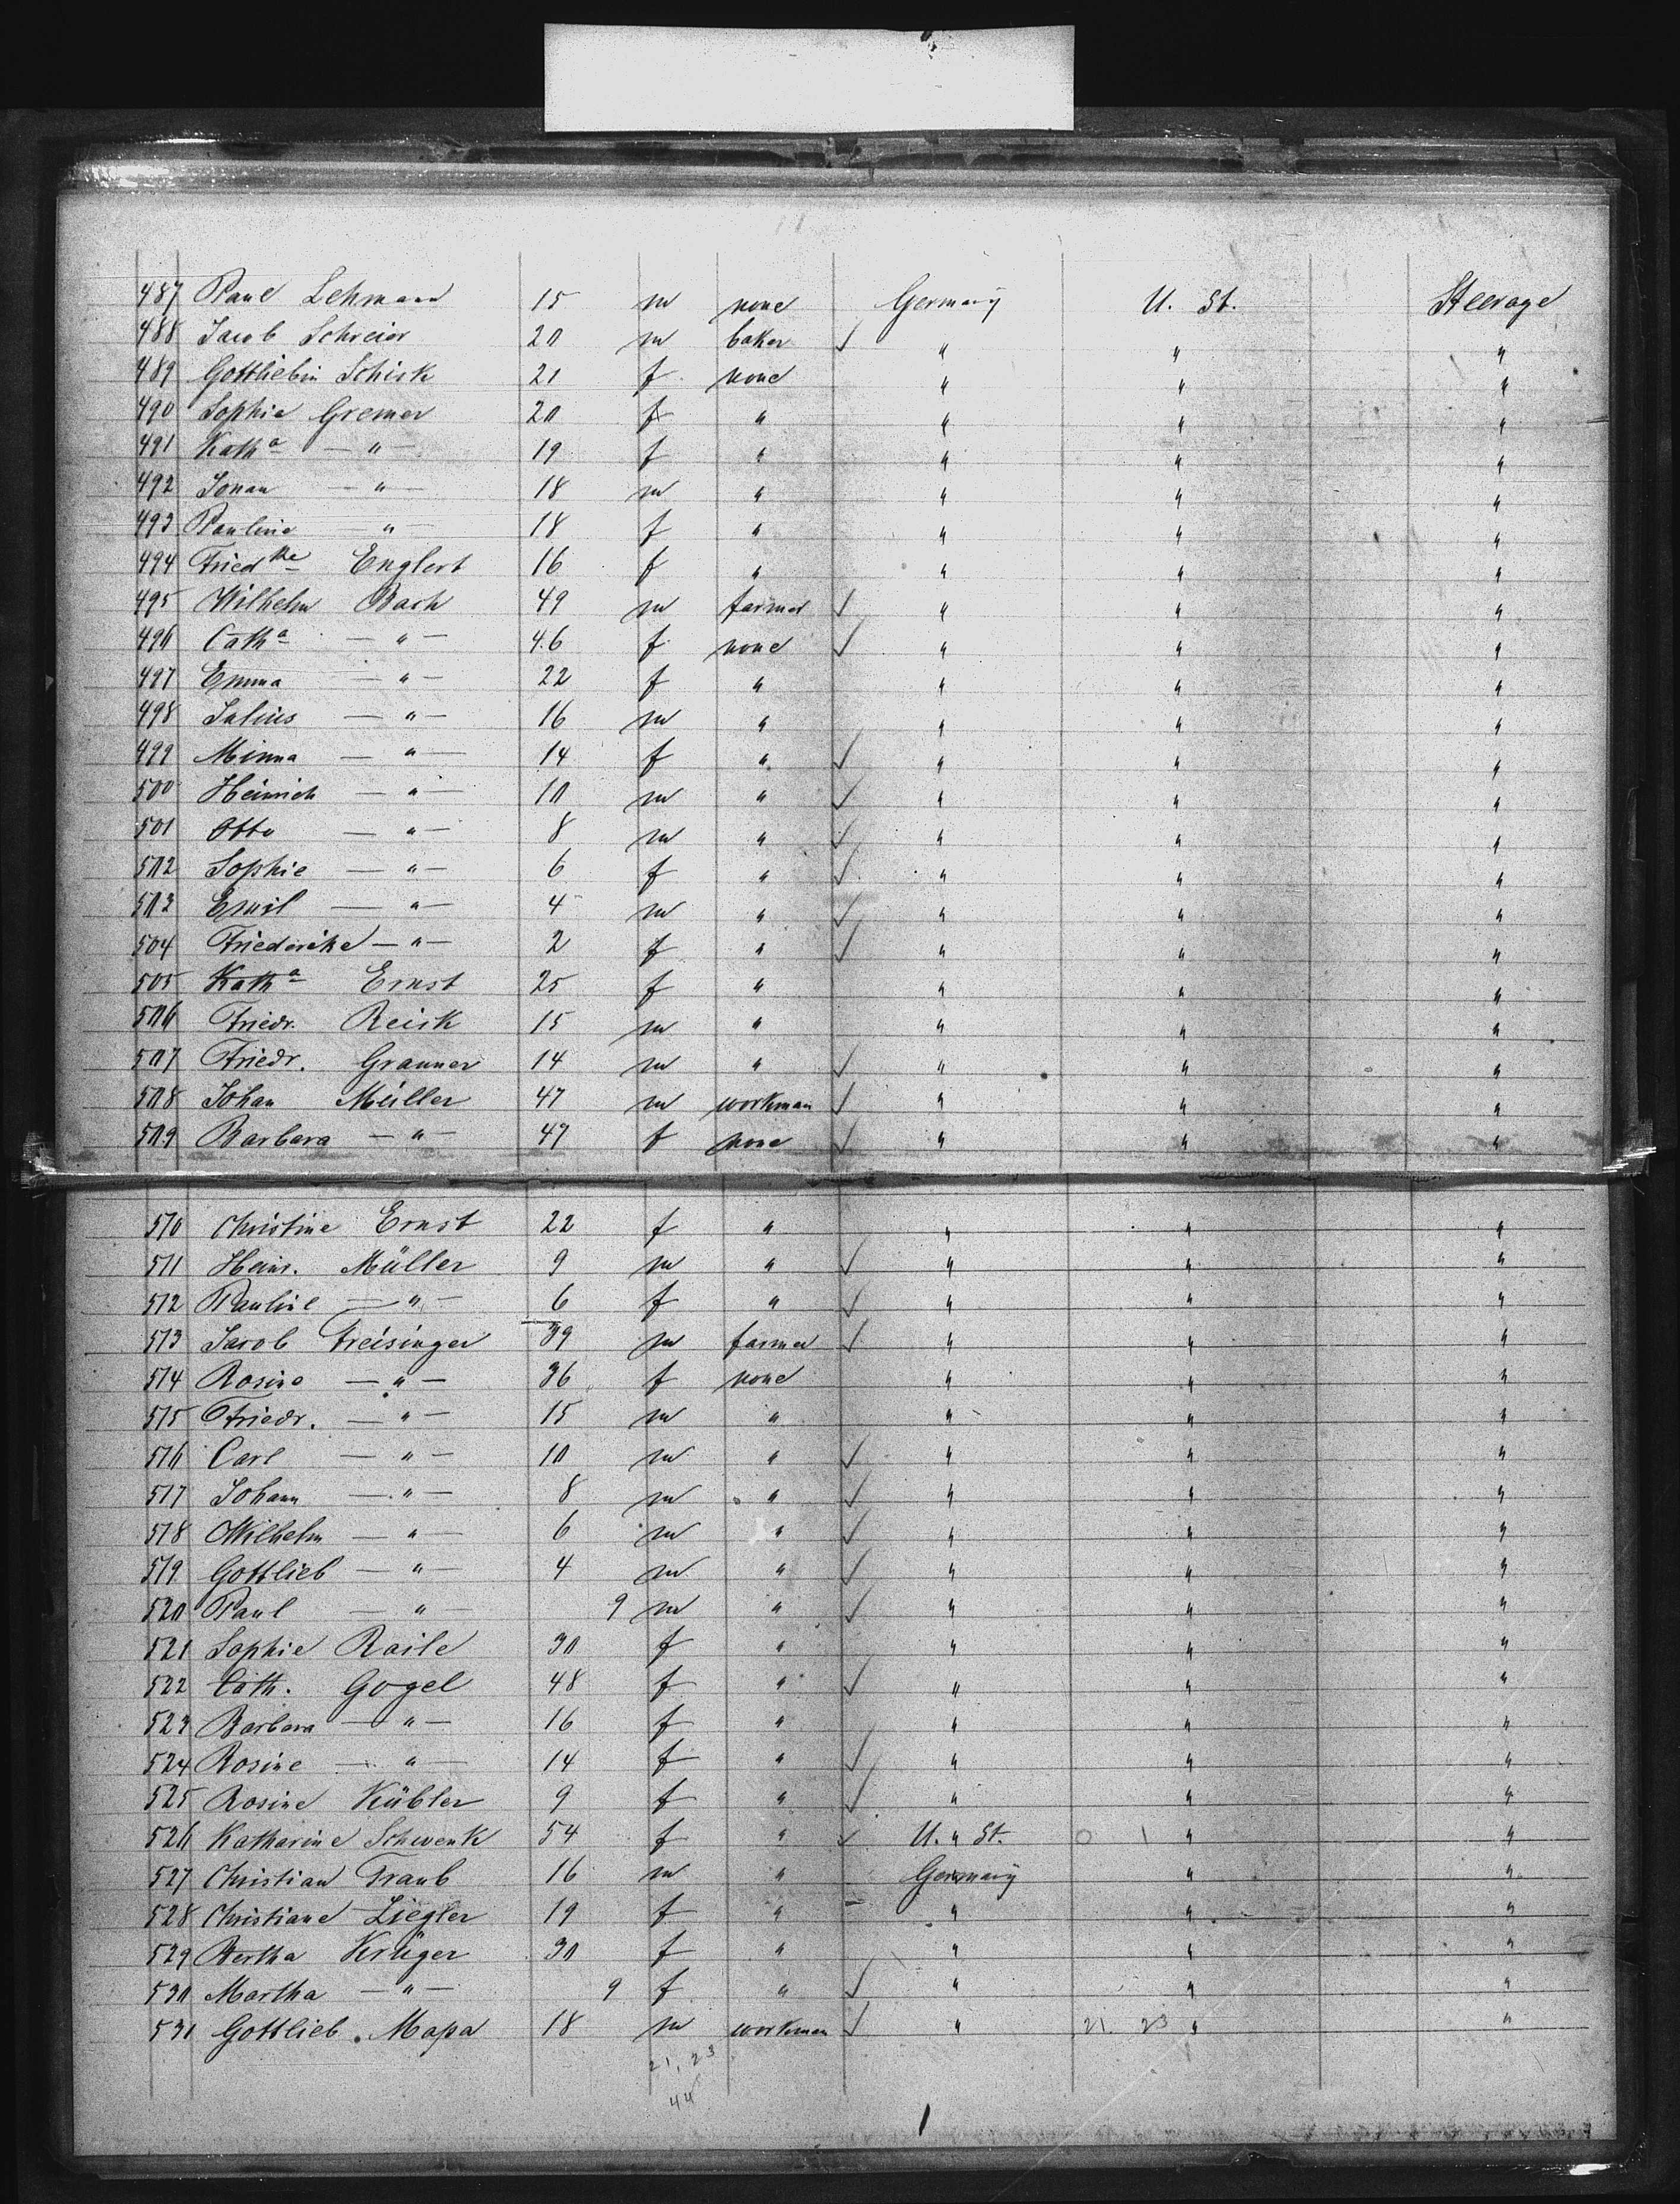 487 Paul Lehmann 15 m none Germany U. St. Steerage
488 Jacob Schreier 20 m baker ✓ " " "
489 Gottliebin Schick 21 f none " " "
490 Sophie Gremer 20 f " " " "
491 Kath<sup>a</sup> — " — 19 f " " " "
492 Johan — " — 18 m " " " "
493 Pauline — " — 18 f " " " "
494 Fried<sup>ke</sup> Englert 16 f " " " "
495 Wilhelm Bach 49 m farmer ✓ " " "
496 Cath<sup>a</sup> — " — 46 f none ✓ " " "
497 Emma — " — 22 f " " " "
498 Julius — " — 16 m " " " "
499 Minna — " — 14 f " ✓ " " "
500 Heinrich — " — 10 m " ✓ " " "
501 Otto — " — 8 m " ✓ " " "
502 Sophie — " — 6 f " ✓ " " "
503 Emil — " — 4 m " ✓ " " "
504 Friederike — " — 2 f " ✓ " " "
505 Kath<sup>a</sup> Ernst 25 f " " " "
506 Friedr. Reick 15 m " " " "
507 Friedr. Granner 14 m " ✓ " " "
508 Johan Müller 47 m workman ✓ " " "
509 Barbara — " — 47 f none ✓ " " "
510 Christine Ernst 22 f " " " "
511 Heinr. Müller 9 m " ✓ " " "
512 Pauline — " — 6 f " ✓ " " "
513 Jacob Freisinger 39 m farmer ✓ " " "
514 Rosine — " — 36 f none " " "
515 Friedr. — " — 15 m " " " "
516 Carl — " — 10 m " ✓ " " "
517 Johann — " — 8 m " ✓ " " "
518 Wilhelm — " — 6 m " ✓ " " "
519 Gottlieb — " — 4 m " ✓ " " "
520 Paul — " — 9 m " ✓ " " "
521 Sophie Raile 30 f " " " "
522 Cath. Gogel 48 f " ✓ " " "
523 Barbara — " — 16 f " " " "
524 Rosine — " — 14 f " ✓ " " "
525 Rosine Kübler 9 f " ✓ " " "
526 Katharine Schwenk 54 f " ✓ U. " St. 0 1 " "
527 Christian Traub 16 m " Germany " "
528 Christiane Ziegler 19 f " – " " "
529 Bertha Krüger 30 f " " " "
530 Martha — " — 9 f " ✓ " " "
531 Gottlieb Mapa 18 m workman ✓ " 21. 23 " "
21, 23
44